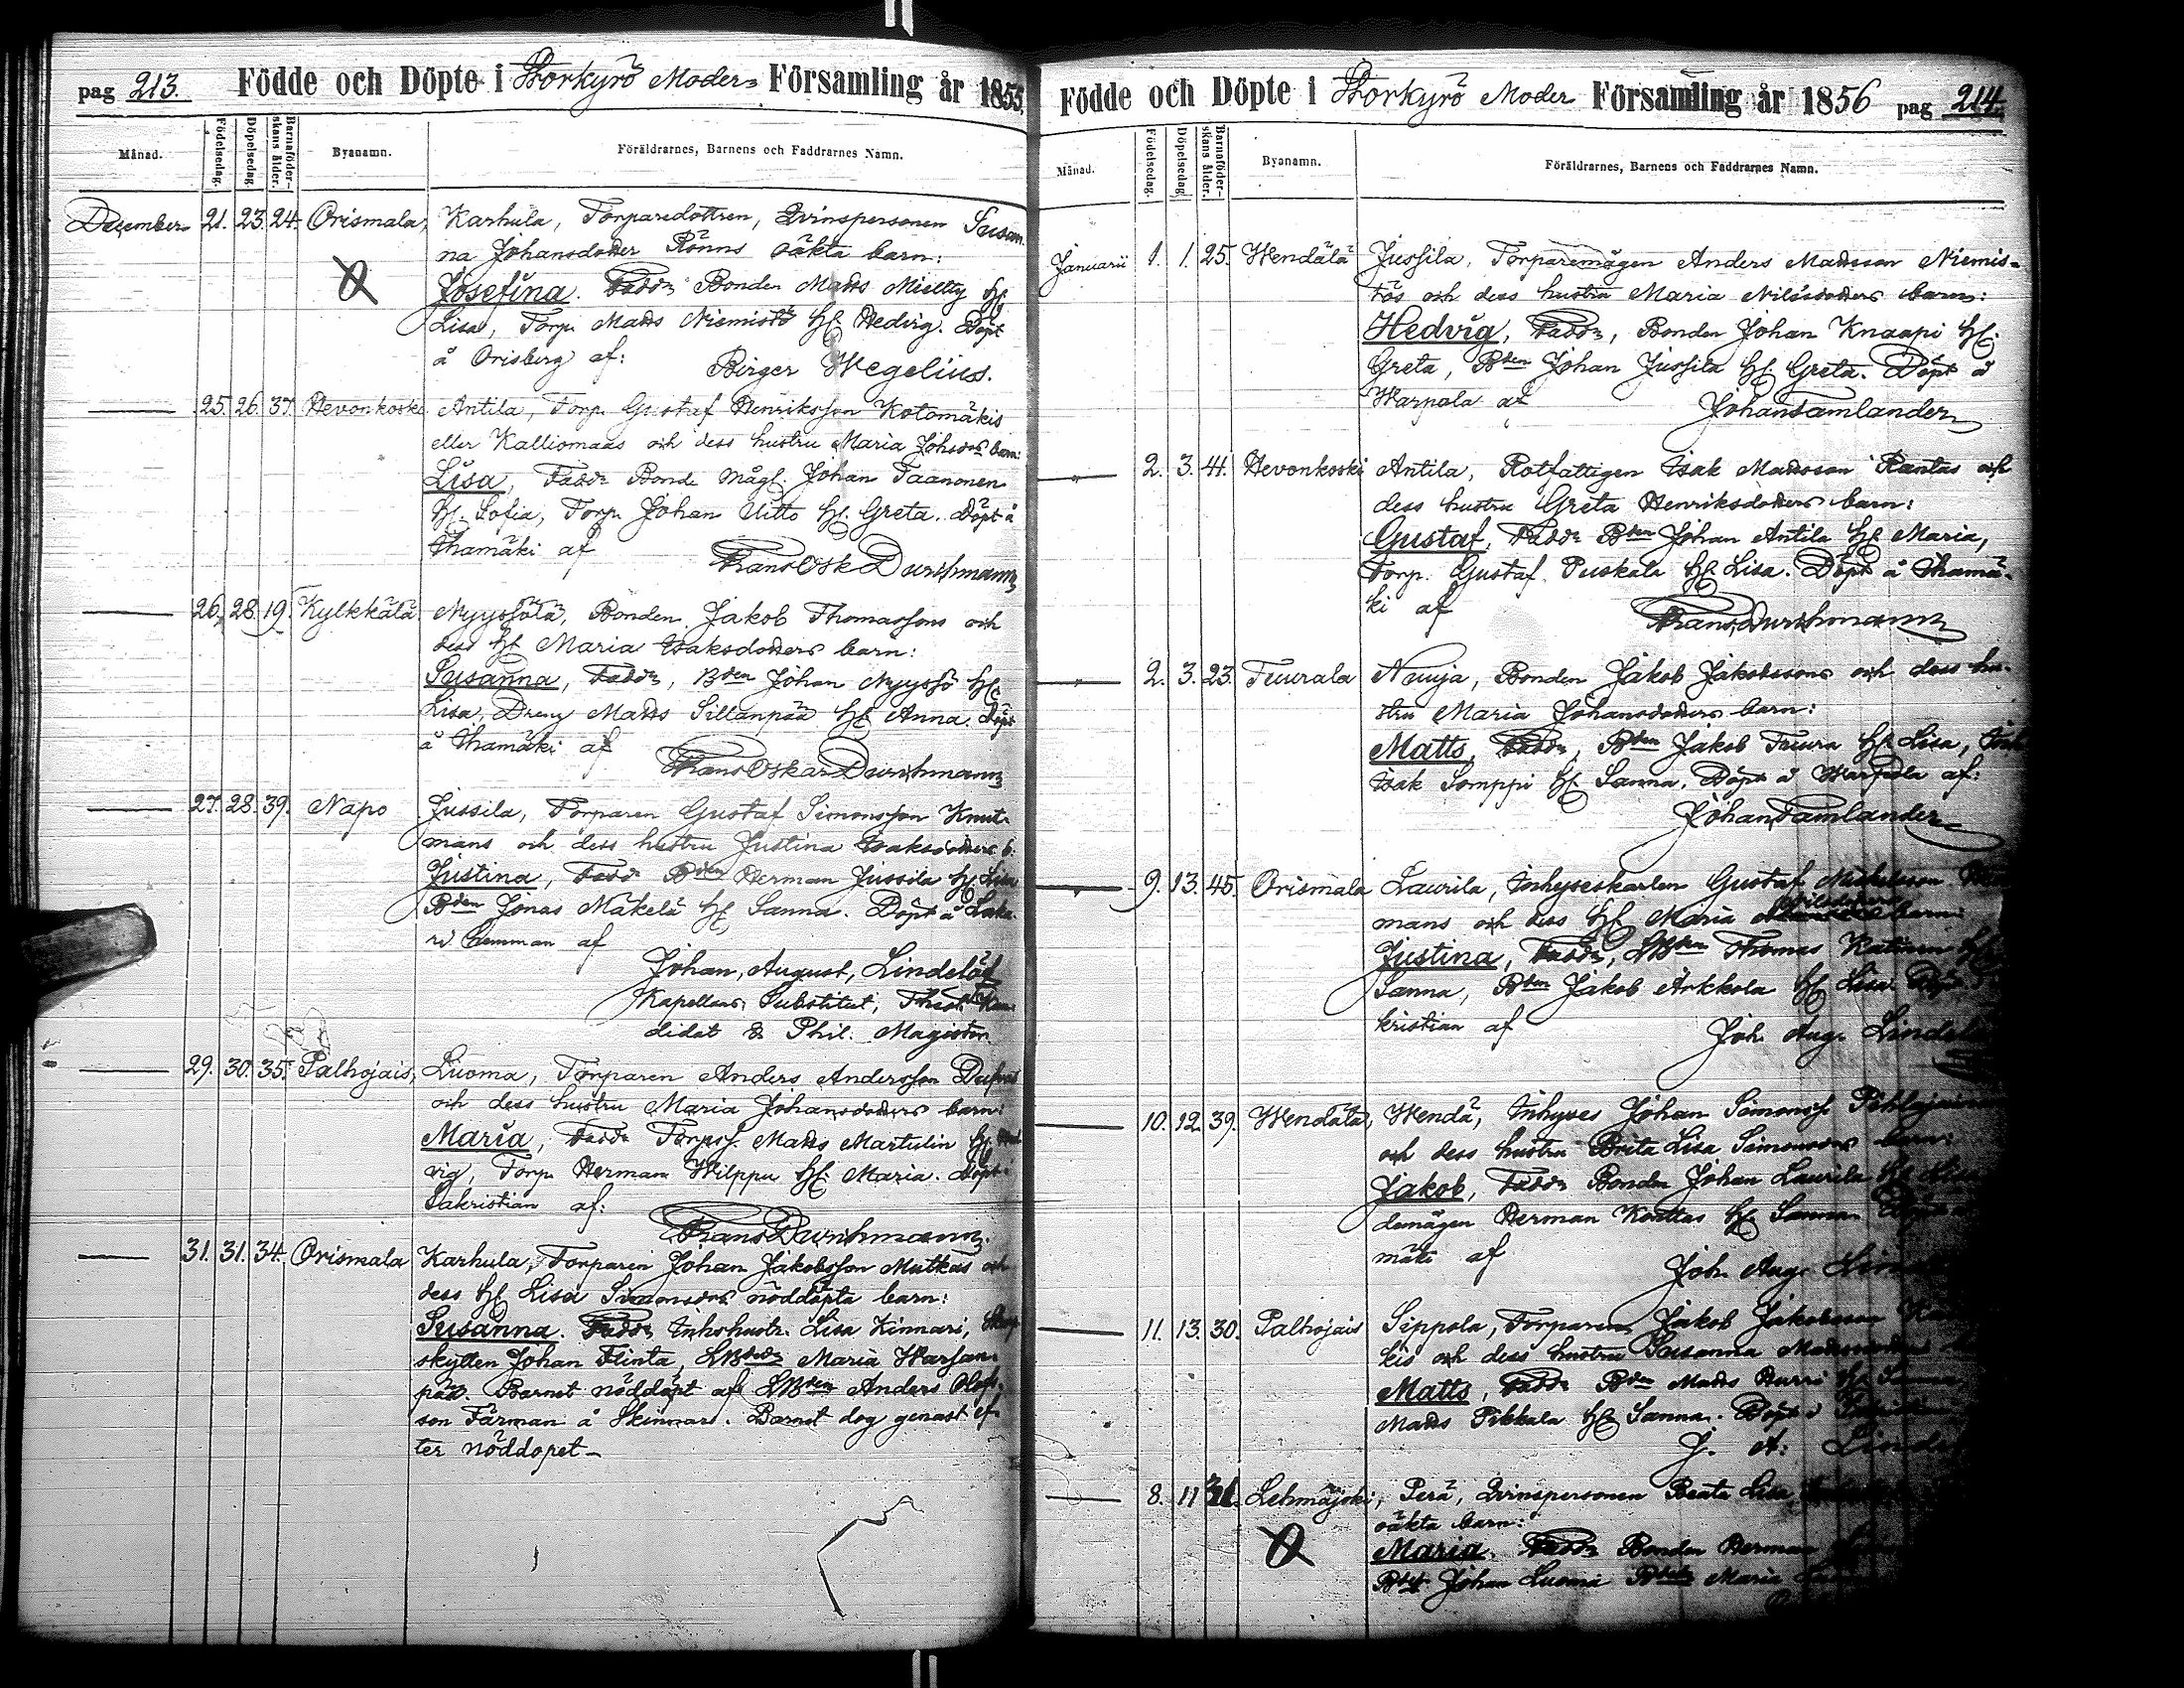 pag 213. Födde och Döpte i Storkyrö Moder- Församling år 1855.
Månad. Födelsedag. Döpelsedag. Barnaföderskans ålder. Byanamn. Föräldrarnes, Barnens och Faddrarnes Namn.
December 21. 23. 24. Orismala, Karhula, Torparedottren, Qvinspersonen Susan
na Johansdotter Rönns oäkta barn:
Josefina. Faddr Bonden Matts Mietty Hl
Lisa, Torp. Matts Niemistö Hl Hedvig. Döpt
å Orisberg af: Birger Wegelius.
25. 26. 37. Hevonkoski Antila, Torp. Gustaf Henriksson Kotamäkis
eller Kalliomaas och dess hustru Maria Johsdrs barn:
Lisa, Faddr Bonde mågl. Johan Taanonen
Hl. Sofia, Torp. Johan Uitto Hl. Greta. Döpt å
Ihamäki af Frans Osk Durchmann
26. 28. 19. Kylkkälä Nyyssölä, Bonden Jakob Thomassons och
dess Hl Maria Isaksdotters barn:
Susanna, Faddr, Bden Johan Nyyssö Hl
Lisa, Dreng Matts Sillanpää Hl Anna. Döpt
å Ihamäki af Frans Oskar Durchmann
27. 28. 39. Napo Jussila, Torparen Gustaf Simonsson Knut-
mans och dess hustru Justina Isaksdotters b:
Justina, Faddr Bden Herman Jussila Hl Lisa
Bden Jonas Mäkelä Hl Sanna. Döpt å
hemman af
Johan, August, Lindelöf
Kapellans Substitut, Theol. Kan-
didat & Phil. Magister
29. 30. 35. Palhojais, Luoma, Torparen Anders Andersson
och dess hustru Maria Johansdotters barn:
Maria, Faddr Torps. Matts Martulin Hl Hed
vig, Torp. Herman Wilppu Hl. Maria. Döpt i
Sakristian af:
Frans Durchmann.
31. 31. 34. Orismala Karhula, Torparen Johan Jakobsson Mutkas och
dess Hl Lisa Simonsdrs nöddöpta barn:
Susanna. Faddr Inhshustr. Lisa Kinnari,
skytten Johan Flinta, Maria Warsan-
pää. Barnet nöddöpt af Anders Olofs-
son Färman å Skinnari. Barnet dog genast ef-
ter nöddopet
Födde och Döpte i Storkyrö Moder Församling år 1856 pag 214.
Månad. Födelsedag. Döpelsedag. Barnaföderskans ålder. Byanamn. Föräldrarnes, Barnens och Faddrarnes Namn.
Januarii 1. 1. 25. Wendälä Jussila, Torparemågen Anders Mattsson Niemis-
tös och dess hustru Maria Nilsdotters barn:
Hedvig, Faddr, Bonden Johan Knaapi Hl.
Greta, Bden Johan Jussila Hl. Greta. Döpt å
Warpala af Johan Tamlander
" 2. 3. 41. Hevonkoski Antila, Rotfattigen Isak Mattsson Rantas och
dess hustru Greta Henriksdotters barn:
Gustaf, Faddr Bden Johan Antila Hl Maria,
Torp. Gustaf Puskala Hl. Lisa. Döpt å Ihamä-
ki af Frans Durchmann
" 2. 3. 23. Tuurala Nuuja, Bonden Jakob Jakobssons och dess hu-
stru Maria Johansdotters barn:
Matts, Faddr, Bden Jakob Tuura Hl Lisa,
Isak Somppi Hl. Sanna. Döpt å Warpala af:
Johan Tamlander
" 9. 13. 45. Orismala Laurila, Inhyseskarlen Gustaf
mans och dess Hl Maria Nilsdotters barn:
Justina, Faddr, Thomas Hl
Sanna, Bden Jakob Arkkola Hl Lisa. Döpt
kristian af Joh. Aug.
10. 12. 39. Wendälä, Wendä, Inhyses Johan Simonss.
och dess hustru Brita Lisa Simonsdrs barn:
Jakob, Faddr Bonden Johan Laurila Hl Lisa
demågen Herman Konttas Hl. Sanna
mäki af Joh. Aug.
11. 13. 30. Palhojais Sippola, Torparen Jakob Jakobsson
kis och dess hustru Susanna
Matts, Faddr Bden Matts Hurri Hl Sanna
Matts Pikkala Hl Sanna. Döpt i
J. A.
8. 11 Lehmäjoki, Perä, Qvinspersonen Beata Lisa
oäkta barn:
Maria. Faddr Bonden Herman
Johan Luoma Maria